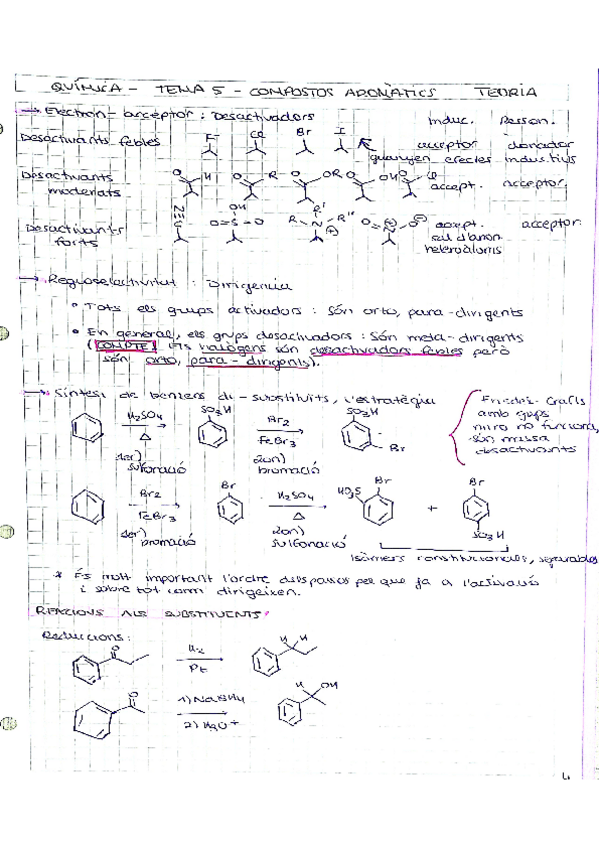 QUÍMICA - TEMA 5 - COMPOSTOS AROMÀTICS TEORIA
→ Electron-acceptor: Desactivadors Induc. Resson.
Desactivants febles F Cl Br I acceptor donador
guanyen efectes inductius
Desactivants moderats O H O R O OR O OH O Cl accept. acceptor
Desactivants forts N OH O=S=O R N R' R'' ⊕ O N O ⊖ accept. acceptor
heteroàtoms
→ Regioselectivitat: Dirigència
• Tots els grups activadors: són orto, para-dirigents
• En general, els grups desactivadors: són meta-dirigents
(COMPTE! Els halògens són desactivadors febles però
són orto, para-dirigents).
→ Síntesi de benzens di-substituïts, l'estratègia
Friedel-Crafts
amb grups
nitro no funciona,
són massa
desactivants
H2SO4 Δ SO3H Br2 FeBr3 SO3H Br
1er) sulfonació 2on) bromació
Br2 FeBr3 Br H2SO4 Δ HO3S Br + Br SO3H
1er) bromació 2on) sulfonació
Isòmers constitucionals, separables
* És molt important l'ordre dels passos per que ja a l'activació
i sobre tot com dirigeixen.
REACCIONS ALS SUBSTITUENTS:
Reduccions:
O H2 Pt H H
O 1) NaBH4 2) H3O+ H OH
4